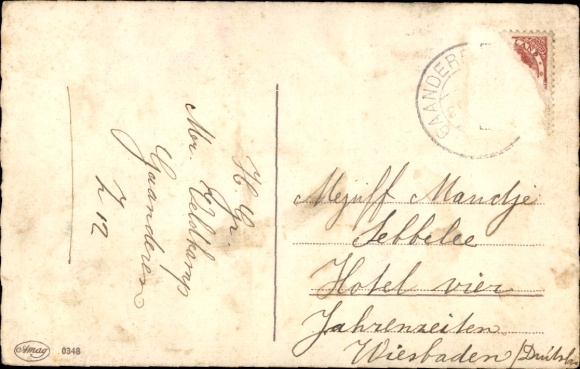 H. Gr.
Mr. Veldkamp
Gaanderen
Z 12
GAANDEREN
Mejuff Mandje
Sebbelee
Hotel vier
Jahrenzeiten
Wiesbaden
Amag
0348